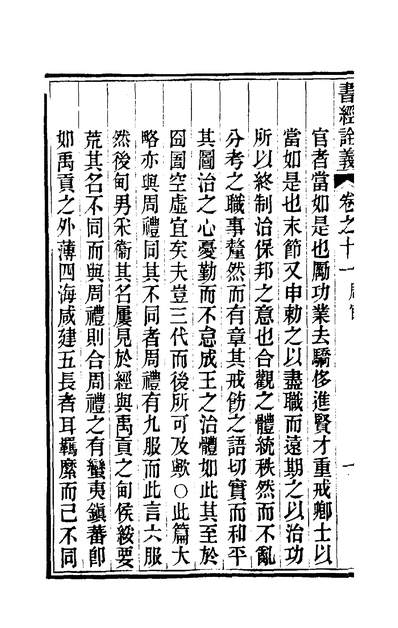 書經詮義 卷之十一 周官
官者當如是也勵功業去驕侈進賢才重戒卿士以
當如是也末節又申勅之以盡職而遠期之以治功
所以終制治保邦之意也合觀之體統秩然而不亂
分考之職事釐然而有章其戒飭之語切實而和平
其圖治之心憂勤而不怠成王之治體如此其至於
囹圄空虛宜矣夫豈三代而後所可及歟○此篇大
略亦與周禮同其不同者周禮有九服而此言六服
然後甸男采衞其名屢見於經與禹貢之甸侯綏要
荒其名不同而與周禮則合周禮之有蠻夷鎭蕃卽
如禹貢之外薄四海咸建五長者耳羈縻而已不同